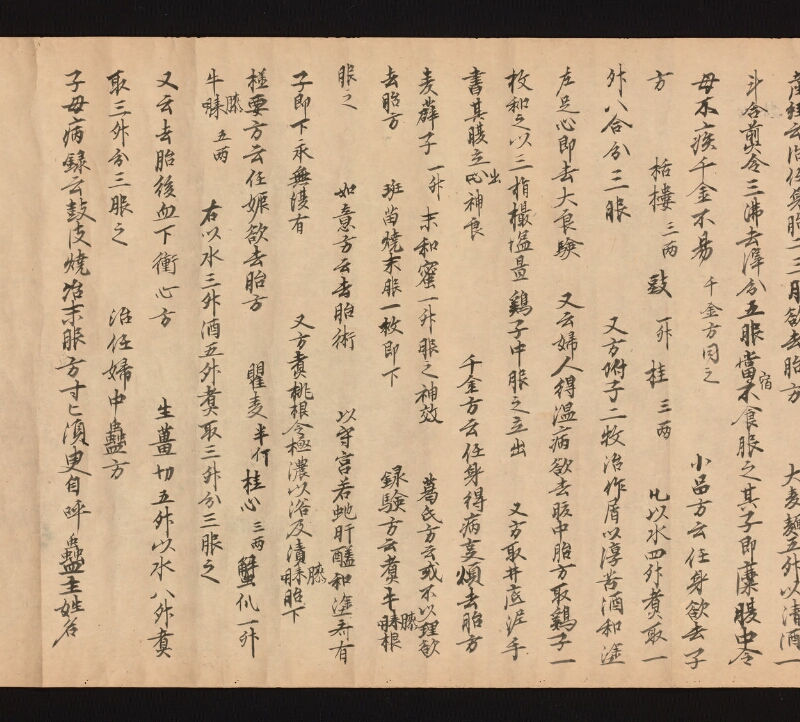 産経云治任身胎二三月欲去胎方　大麦麺五升以清酒一
斗合煎令三沸去滓分五服當宿不食服之其子即糜腹中令
母不疾千金不易　千金方同之　小品方云任身欲去子
方　栝樓三两　豉一升　桂三两　凡以水四升煮取一
升八合分三服　又方附子二枚治作屑以淳苦酒和塗
左足心即去大良験　又云婦人得温病欲去腹中胎方取鷄子一
枚和之以三指撮塩置鷄子中服之立出　又方取井底泥手
書其腹立出神良　千金方云任身得病羞煩去胎方
麦蘖子一升末和蜜一升服之神效　葛氏方云或不以理欲
去胎方　班苗燒末服一枚即下　録験方云煮牛膝根
服之　如意方云去胎術　以守宮若虵肝醯和塗斉有
子即下永無復有　又方煮桃根令極濃以浴及漬膝胎下
極要方云任娠欲去胎方　瞿麦半斤桂心三两蟹爪一升
牛膝五两　右以水三升酒五升煮取三升分三服之
又云去胎後血下衝心方　生薑切五升以水八升煮
取三升分三服之　治任婦中蠱方
子母病録云鼓皮燒冶末服方寸匕須臾自呼蠱主姓名